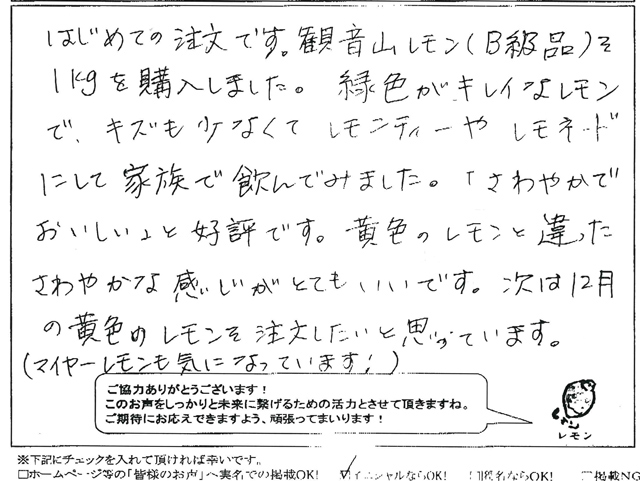 はじめての注文です。観音山レモン(B級品)を
1kgを購入しました。緑色がキレイなレモン
で、キズも少なくてレモンティーやレモネード
にして家族で飲んでみました。「さわやかで
おいしい」と好評です。黄色のレモンと違った
さわやかな感じがとてもいいです。次は12月
の黄色のレモンを注文したいと思っています。
(マイヤーレモンも気になっています!)
ご協力ありがとうございます!
このお声をしっかりと未来に繋げるための活力とさせて頂きますね。
ご期待にお応えできますよう、頑張ってまいります!
レモン
※下記にチェックを入れて頂ければ幸いです。
□ホームページ等の「皆様のお声」へ実名での掲載OK! ☑イニシャルならOK! □匿名ならOK! □掲載NG